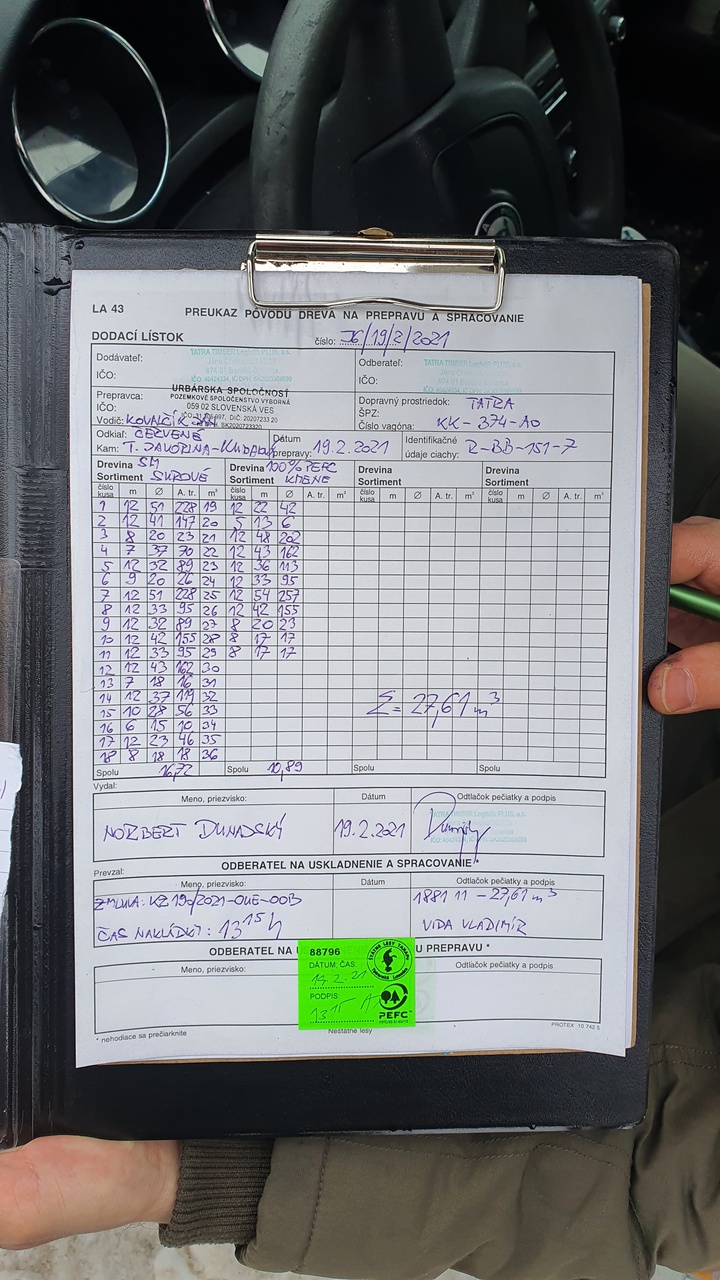 LA 43
PREUKAZ PÔVODU DREVA NA PREPRAVU A SPRACOVANIE
DODACÍ LÍSTOK
číslo: 36/19/2/2021
Dodávateľ:
IČO:
TATRA TIMBER
Odberateľ:
IČO:
TATRA TIMBER
Prepravca:
IČO:
URBÁRSKA SPOLOČNOSŤ
POZEMKOVÉ SPOLOČENSTVO VÝBORNÁ
059 02 SLOVENSKÁ VES
Vodič: KOVALČÍK JÁN
Dopravný prostriedok: TATRA
ŠPZ:
Číslo vagóna: KK-374-AO
Odkiaľ: ČERVENÉ
Kam: T. JAVORINA-
Dátum prepravy: 19.2.2021
Identifikačné údaje ciachy: R-BB-151-7
Drevina SM
Sortiment
Drevina 100% PEFC
Sortiment KMENE
Drevina
Sortiment
Drevina
Sortiment
číslo kusa m Ø A. tr. m³ číslo kusa m Ø A. tr. m³ číslo kusa m Ø A. tr. m³ číslo kusa m Ø A. tr. m³
1 12 51 228 19 12 22 42
2 12 41 147 20 5 13 6
3 8 20 23 21 12 48 202
4 7 37 70 22 12 43 162
5 12 32 89 23 12 36 113
6 9 20 26 24 12 33 95
7 12 51 228 25 12 54 257
8 12 33 95 26 12 42 155
9 12 32 89 27 8 20 23
10 12 42 155 28 8 17 17
11 12 33 95 29 8 17 17
12 12 43 162 30
13 7 18 16 31
14 12 37 119 32
15 10 28 56 33
16 6 15 10 34
17 12 23 46 35
18 8 18 18 36
Σ= 27,61 m³
Spolu 16,72 Spolu 10,89 Spolu Spolu
Vydal:
Meno, priezvisko: Dátum Odtlačok pečiatky a podpis
NORBERT DUNAJSKÝ 19.2.2021
Prevzal:
ODBERATEĽ NA USKLADNENIE A SPRACOVANIE *
Meno, priezvisko: Dátum Odtlačok pečiatky a podpis
ZMLUVA: KZ 190/2021-OUE-OOB
1881 11 - 27,61 m³
ČAS NAKLÁDKY: 13 15 h
VIDA VLADIMÍR
ODBERATEĽ NA U
U PREPRAVU *
Meno, priezvisko:
Odtlačok pečiatky a podpis
88796
DÁTUM, ČAS:
19.2.21
PODPIS:
13 15
ŠTÁTNE LESY TANAPu
PEFC
* nehodiace sa prečiarknite
Neštátne lesy
PROTEX 10 742 5